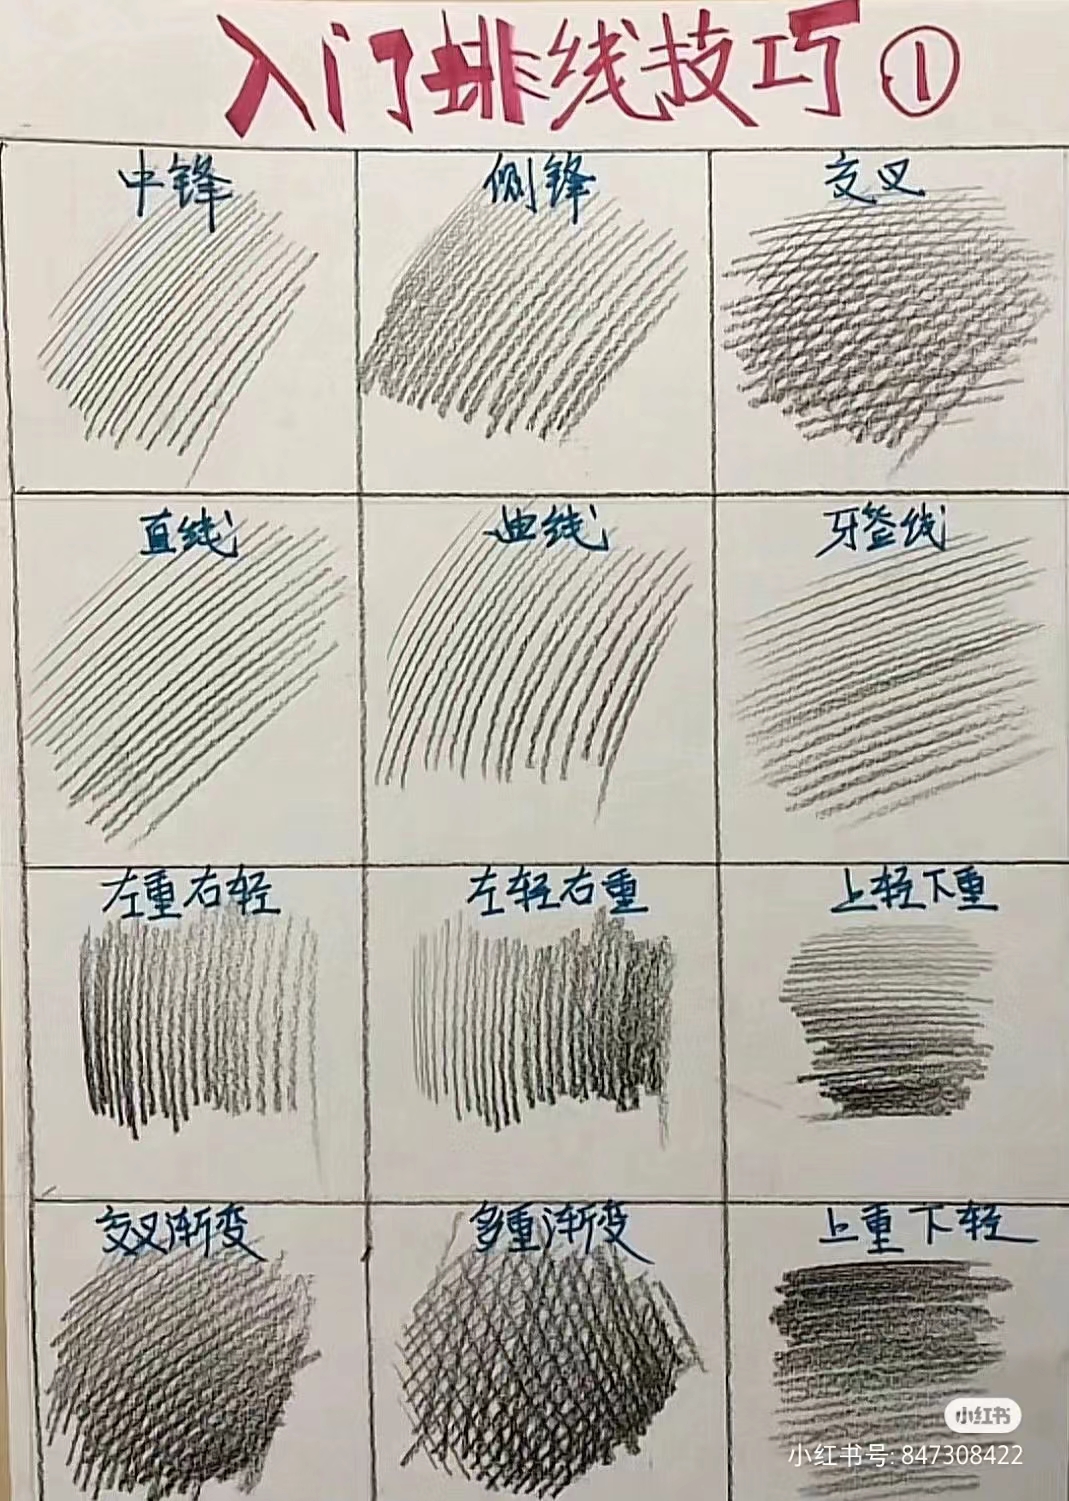 入门排线技巧①
中锋 侧锋 交叉
直线 曲线 牙签线
左重右轻 左轻右重 上轻下重
交叉渐变 多重渐变 上重下轻
小红书
小红书号: 847308422